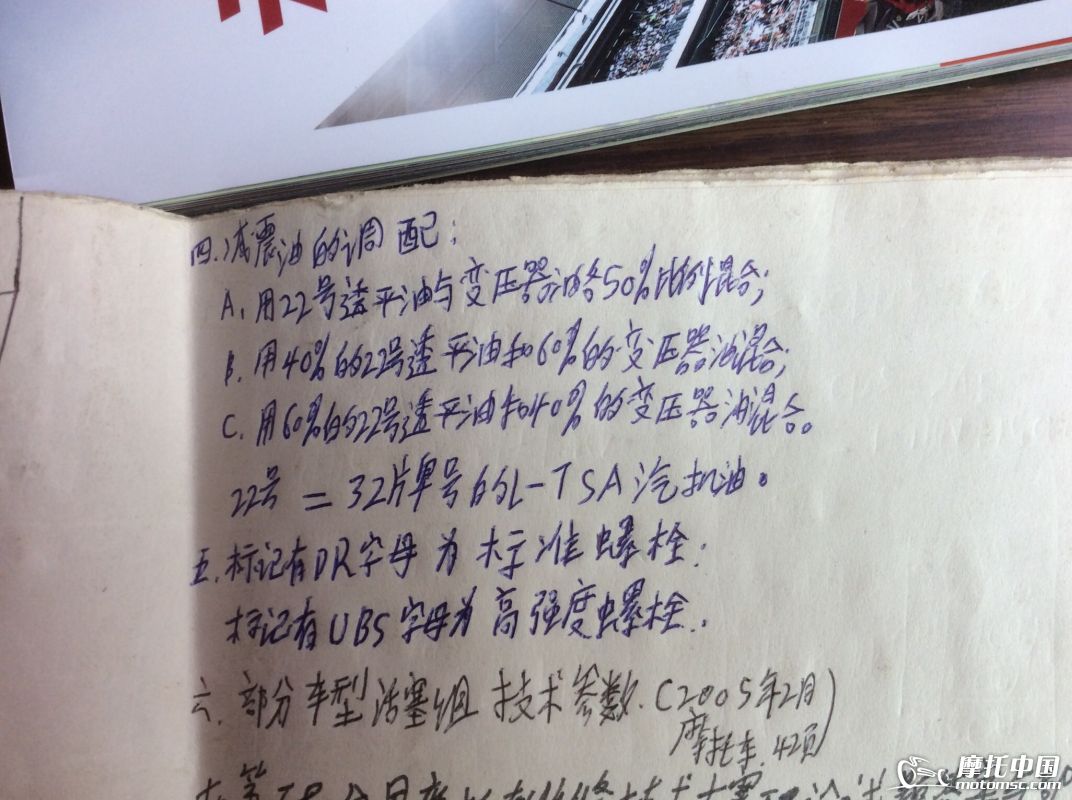 四.减震油的调配:
A.用22号透平油与变压器油各50%比例混合;
B.用40%的22号透平油和60%的变压器油混合;
C.用60%的22号透平油和40%的变压器油混合。
22号=32牌号的L-TSA汽机油。
五.标记有DR字母为标准螺栓.
标记有UBS字母为高强度螺栓.
六.部分车型活塞组技术参数.(2005年2月)
摩托车.42页
摩托中国
motomsc.com